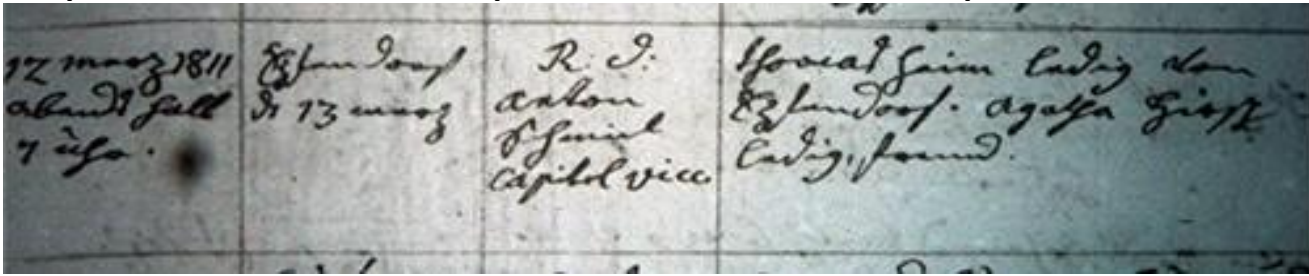 12 merz 1811
abends halb
7 uhr.
Etzendorf
d 13 merz
R: D:
anton
Schmid
capitel vica
thomas heim ledig von
Etzendorf. agatha
ledig, fremd.